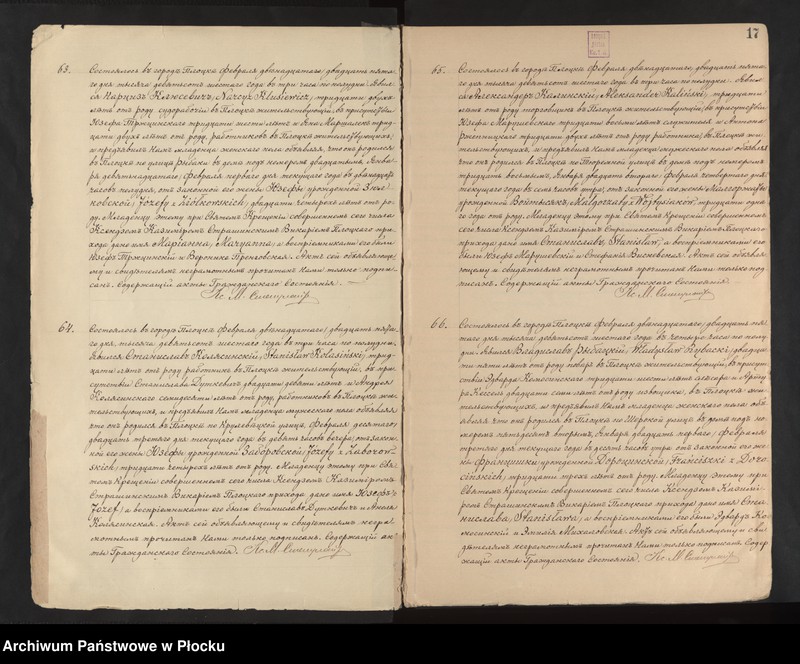 17
63.
Состоялось въ городѣ Плоцкѣ Февраля двѣнадцатаго/двадцать пята-
го дня тысяча девятьсотъ шестого года въ три часа по полудни. Явил-
ся Нарцизъ Клюсевичъ, /Narcyz Klusiewicz/, тридцати двухъ
лѣтъ отъ роду, въ Плоцкѣ жительствующій, въ присутствіи
Іозефа тридцати лѣтъ и Яна трид-
цати двухъ лѣтъ отъ роду, работниковъ въ Плоцкѣ жительствующихъ,
и предъявилъ Намъ младенца женскаго пола объявляя, что онъ родился
въ Плоцкѣ на улицѣ Рыбаки въ домѣ подъ номеромъ двадцатымъ, Янва-
ря девятнадцатаго/Февраля перваго дня текущаго года въ двѣнадцать
часовъ полудня, отъ законной его жены Іозефы урожденной
/Józefy z /, двадцати четырехъ лѣтъ отъ ро-
ду. Младенцу этому при Святомъ Крещеніи совершенномъ сего числа
Ксендзомъ Казиміромъ Страшинскимъ Викаріемъ Плоцкаго при-
хода дано имя Маріанна, /Maryanna/ а воспріемниками его были
Іозефъ и Вероника. Актъ сей объявляюще-
му и свидѣтелямъ неграмотнымъ прочитанъ Нами только подпи-
санъ. Содержащій акты Гражданскаго Состоянія.
Кс. М.
64.
Состоялось въ городѣ Плоцкѣ Февраля двѣнадцатаго/двадцать пята-
го дня, тысяча девятьсотъ шестого года въ три часа по полудни.
Явился Станиславъ Колясинскій, /Stanisław Kolasiński/, трид-
цати лѣтъ отъ роду работникъ въ Плоцкѣ жительствующій, въ при-
сутствіи Станислава Дуткевичъ двадцати девяти лѣтъ и Андрея
Колясинскаго семидесяти лѣтъ отъ роду, работниковъ въ Плоцкѣ жи-
тельствующихъ, и предъявилъ Намъ младенца мужескаго пола объявляя
что онъ родился въ Плоцкѣ на Крулевецкой улицѣ, Февраля десятаго/
двадцать третьяго дня текущаго года въ девять часовъ вечера, отъ закон-
ной его жены Іозефы урожденной Заборовской, /Józefy z Zaborow-
skich/, тридцати четырехъ лѣтъ отъ роду. Младенцу этому при Свя-
томъ Крещеніи совершенномъ сего числа Ксендзомъ Казиміромъ
Страшинскимъ Викаріемъ Плоцкаго прихода дано имя Іозефъ,
/Józef/, а воспріемниками его были Станиславъ Дуткевичъ и Анеля
Колясинская. Актъ сей объявляющему и свидѣтелямъ негра-
мотнымъ прочитанъ Нами только подписанъ. Содержащій ак-
ты Гражданскаго Состоянія. Кс. М.
65.
Состоялось въ городѣ Плоцкѣ Февраля двѣнадцатаго/двадцать пята-
го дня тысяча девятьсотъ шестого года въ три часа по полудни. Явил-
ся Александеръ Калинскій, /Aleksander Kaliński/, тридцати
лѣтъ отъ роду торговщикъ въ Плоцкѣ жительствующій, въ присутствіи
Іозефа Марушевскаго тридцати восьми лѣтъ и Антона
тридцати двухъ лѣтъ отъ роду работника, въ Плоцкѣ жи-
тельствующихъ, и предъявилъ Намъ младенца мужескаго пола объявляя
что онъ родился въ Плоцкѣ по улицѣ въ домѣ подъ номеромъ
тридцать восьмымъ, Января двадцать второго/Февраля четвертаго дня
текущаго года въ семь часовъ утра, отъ законной его жены Малгоржаты
урожденной Войтысякъ, /Małgorzaty Wojtysiaków/, тридцати одно-
го года отъ роду. Младенцу этому при Святомъ Крещеніи совершенномъ
сего числа Ксендзомъ Казиміромъ Страшинскимъ Викаріемъ Плоцкаго
прихода дано имя Станиславъ, /Stanisław/, а воспріемниками его
были Іозефъ Марушевскій и Стефанія Висневская. Актъ сей объявля-
ющему и свидѣтелямъ неграмотнымъ прочитанъ Нами только под-
писанъ. Содержащій акты Гражданскаго Состоянія.
Кс. М.
66.
Состоялось въ городѣ Плоцкѣ Февраля двѣнадцатаго/двадцать пя-
таго дня тысяча девятьсотъ шестого года въ четыре часа по полу-
дни. Явился Владиславъ Рыбацкій, /Władysław Rybacki/, двадца-
ти пяти лѣтъ отъ роду поваръ въ Плоцкѣ жительствующій, въ присут-
ствіи Эдварда тридцати шести лѣтъ и Арту-
ра Кессель двадцати семи лѣтъ отъ роду въ Плоцкѣ жи-
тельствующихъ, и предъявилъ Намъ младенца женскаго пола объ-
являя что онъ родился въ Плоцкѣ по Широкой улицѣ въ домѣ подъ но-
меромъ пятьдесятъ вторымъ, Января двадцать перваго/Февраля
третьяго дня текущаго года въ десять часовъ утра отъ законной его же-
ны Францишки урожденной Дороцинской, /Franciszki z Doro-
cińskich/, тридцати трехъ лѣтъ отъ роду. Младенцу этому при
Святомъ Крещеніи совершенномъ сего числа Ксендзомъ Казимі-
ромъ Страшинскимъ Викаріемъ Плоцкаго прихода дано имя Стани-
слава, /Stanisława/, а воспріемниками его были Эдвардъ
и Эмилія Михаловская. Актъ сей объявляющему и сви-
дѣтелямъ неграмотнымъ прочитанъ Нами только подписанъ. Содер-
жащій акты Гражданскаго Состоянія. Кс. М.
Archiwum Państwowe w Płocku